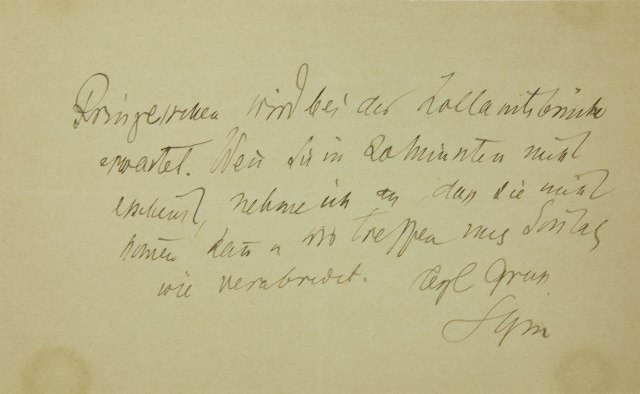 Prinzesschen wird bei der Zollamtsbrücke
erwartet. Wenn Sie in 20 Minuten nicht
erscheint, nehme ich an, dass sie nicht
kommen kann u wir treffen uns Sontag
wie verabredet.